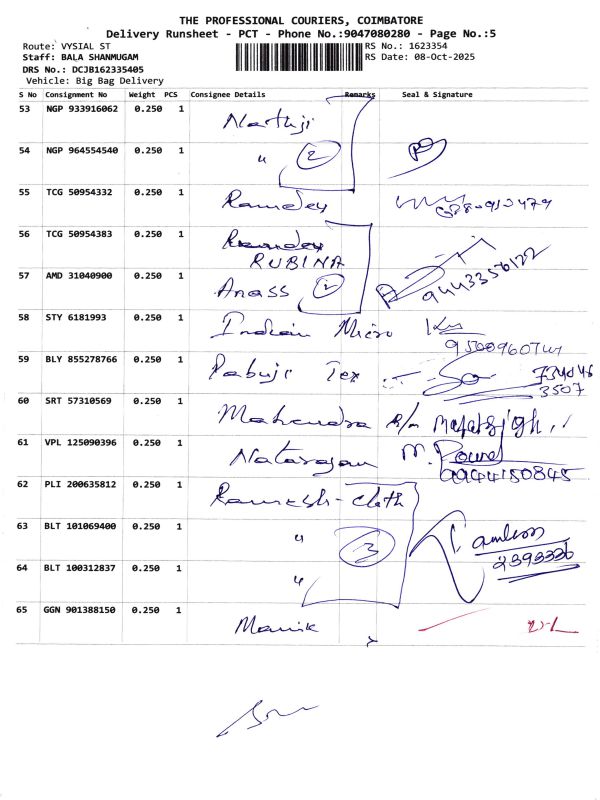 THE PROFESSIONAL COURIERS, COIMBATORE
Delivery Runsheet - PCT - Phone No.:9047080280 - Page No.:5
Route: VYSIAL ST RS No.: 1623354
Staff: BALA SHANMUGAM RS Date: 08-Oct-2025
DRS No.: DCJB162335405
Vehicle: Big Bag Delivery
S No Consignment No Weight PCS Consignee Details Remarks Seal & Signature
53 NGP 933916062 0.250 1
54 NGP 964554540 0.250 1 " 2
55 TCG 50954332 0.250 1 Ramdev
56 TCG 50954383 0.250 1 Ramdev
RUBINA
57 AMD 31040900 0.250 1 Anass 2 9443356122
58 STY 6181993 0.250 1 Indian Micro
59 BLY 855278766 0.250 1 Pabuji Tex
3507
60 SRT 57310569 0.250 1 Mahendra
61 VPL 125090396 0.250 1 Natarajan M.
9944150845
62 PLI 200635812 0.250 1 Ramesh-Cloth
63 BLT 101069400 0.250 1 " 3
2393336
64 BLT 100312837 0.250 1 "
65 GGN 901388150 0.250 1 Manik